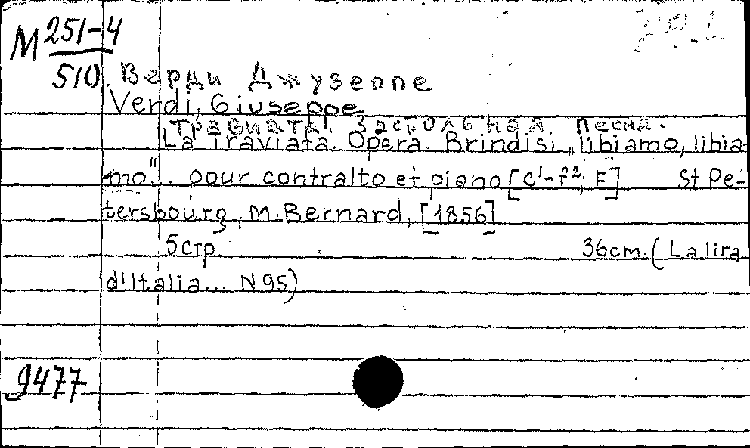 М 251-4
510
Верди Джузеппе
Verdi, Giuseppe
Травиата. Застольная песня.
La Traviata. Opera. Brindisi „libiamo, libia-
mo". pour contralto et piano [c¹-f², F] St Pe-
tersbourg, M. Bernard, [1856]
5 стр. 36 cm. (La lira
d'Italia... N 95)
9477